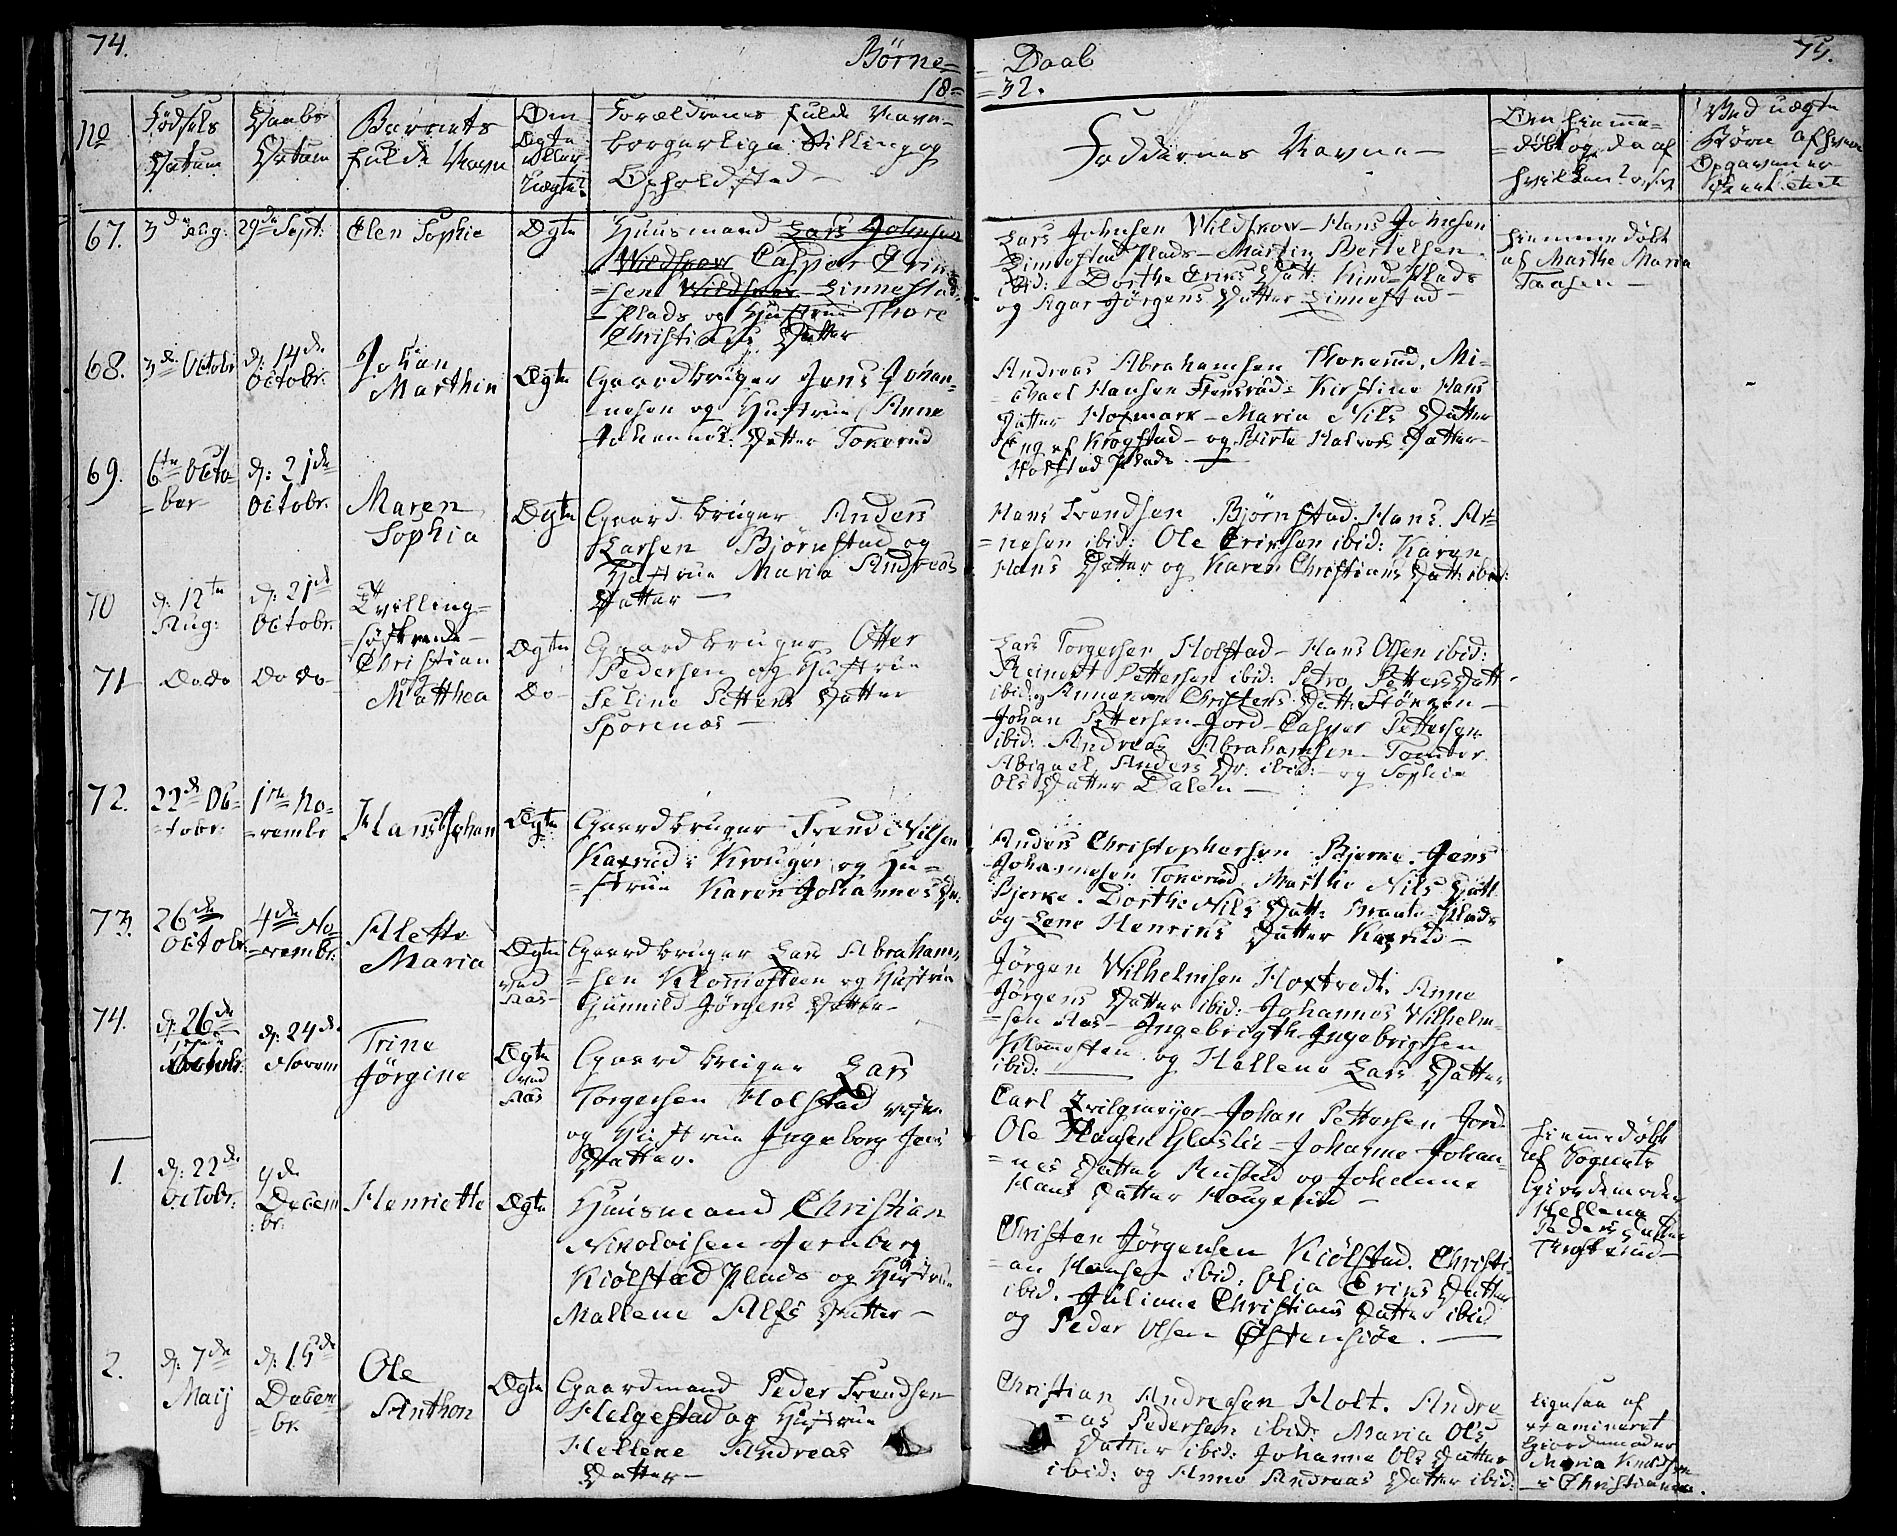 74.
Børne=
18=
No
Fødsels
Datum
Daabs
Datum
Barnets
fulde Navn
Om
Ægte
eller
Uægte?
Forældrenes fulde Navn
borgerlige Stilling og
Opholdsted —
67.
3de Aug:
29de Sept:
Elen Sophie
Ægte
Huusmand Lars Johnsen
Wildskow Casper Erik=
=sen Wildskow Linnestad
= Plads og Hustrue Thore
Christians Datter
68.
3de Octobr
d: 14de
Octobr.
Johan
Marthin
Ægte
Gaardbruger Jens Johan=
=nesen og Hustrue Anne
Johannes: Datter Tokerud
69.
6te Octo=
=ber
d: 21de
Octobr.
Maren
Sophia
Ægte
Gaardbruger Anders
Larsen Bjørnstad og
Hustrue Maria Andreas
Datter —
70
d: 12te
Aug:
d: 21de
Octobr.
Tvilling=
=søskende —
Christian
Ægte
Gaardbruger Otter
Pedersen og Hustrue
71
Dodo
Do do
og
Matthea
Do —
Seline Petters Datter
Sporenæs —
72.
22de Oc=
=tobr:
1te No=
=vembr
Hans Johan
Ægte
Gaardbruger Trend Nilsen
Kaxrud i Kroger og Hu=
=strue Karen Johannes Dr.
73.
26de
Octobr.
4de No=
=vembr:
Alette
Maria
Ægte
ved
Aas —
Gaardbruger Lars Abraham=
=sen Klommesteen og Hustrue
Gunnild Jørgens Datter —
74.
d: 26de
Octobr:
d: 24de
Novem
Trine
Jørgine
Ægte
ved
Aas
Gaardbruger Lars
Torgersen Holstad vestre
og Hustrue Ingeborg Jens
Datter.
1.
d: 22de
Octobr:
9de
Decem
br.
Henriette
Ægte
Huusmand Christian
Nikolaisen Jernberg
Kiølstad Plads og Hustrue
Mallene Alfs Datter —
2.
d: 7de
Maij
d: 15de
Decem
br.
Ole
Anthon
Ægte
Gaardmand Peder Trendsen
Helgestad og Hustrue
Hellene Andreas
Datter —
75.
= Daab
=32.
Faddernes Navne —
Om hiemme=
=døbt og da af
hvilken?
Ved uægte
Børn af hvem
Opgaven er
Lars Johnsen Wildskow — Hans Johnesen
Linnestad Plads — Martin Bertelsen
ibid: — Dorthe Eriks Datt: Plads
og Agar Jørgens Datter Linnestad —
hiemmedøbt
af Marthe Maria
Taasen —
Andreas Abrahamsen Tokerud, Mi=
=chael Hansen Kirstine Hans
Datter Hofmark — Maria Nils Datter
Enge af Krogstad — og Birte Halvors Datter —
Holstad Plads —
Hans Trendsen Bjørnstad. Hans Ar=
=nesen ibid: Ole Eriksen ibid: Karen
Hans Datter og Karen Christians Datt: ibid:
Lars Torgersen Holstad — Hans Olsen ibid:
Reinert Pettersen ibid: Petro Petters Datt
ibid: og Anne Christens Datt: Stønzen —
Johan Pettersen Jord — Casper Pettersen
ibid: Andreas Abrahamsen — Tomter
Abigael Anders Dr. ibid: — og Sophie
Ols Datter Dalen —
Anders Christophersen Bjerke. Jens
Johannesen Tokerud, Marthe Nils Datt
Bjerke. Dorthe Nils Datt: Plads
og Lene Henriks Datter Kaxrud —
Jørgen Wilhelmsen Hoxtvedt. Anne
Jørgens Datter ibid: Johannes Wilhelm=
=sen Aas — Ingebrigth Ingebrigtsen
Klommesten og Hellene Lars Datter
ibid: —
Carl Johan Pettersen Jord
Ole Hansen Glaslie — Johanne Johan=
=nes Datter Rustad og Johanne
Hans Datter Haugerud —
hiemmedøbt
af Sognets
Giordemoder
Hellena
Peders Datter
Christen Jørgensen Kiølstad. Christi=
=an Hansen ibid: Olia Eriks Datter
ibid. Juliane Christians Datter ibid
og Peder Olsen Østensiøe. —
Christian Andresen Holt. Andre=
=as Pedersen ibid: Maria Ols
Datter ibid: Johanne Ols Datter
ibid: og Anne Andreas Datter ibid:
ligesaa af
examineret
Giordemoder
Maria Knudsen
i Christiania.